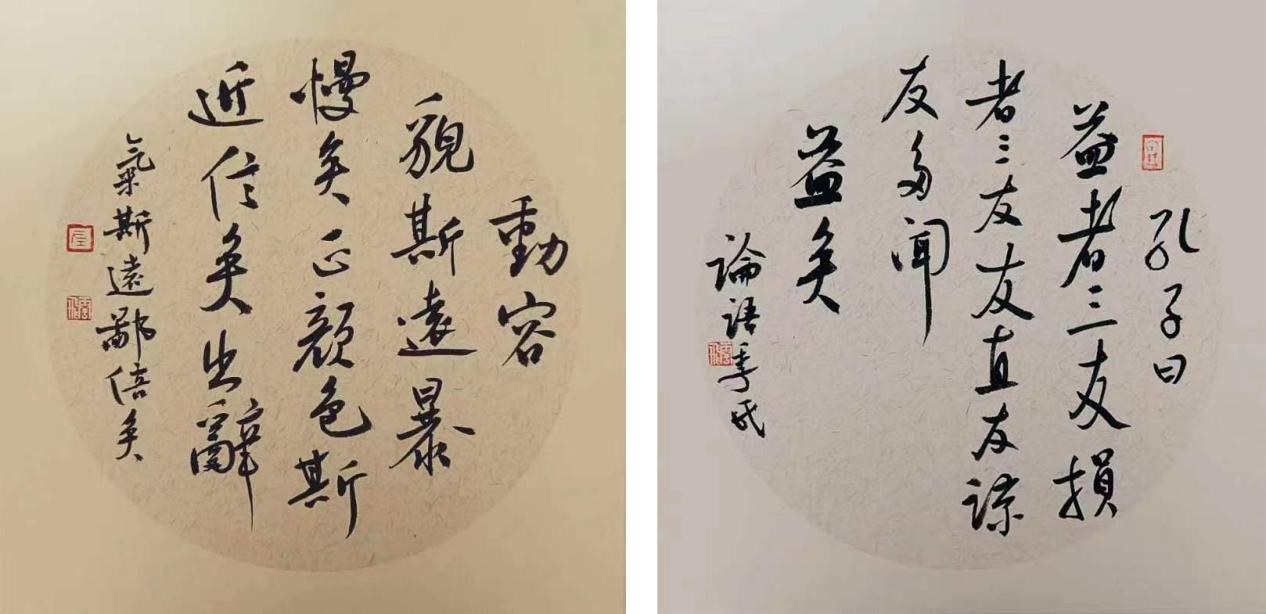 動容
貌斯遠暴
慢矣正顏色斯
近信矣出辭
氣斯遠鄙倍矣
孔子曰
益者三友損
者三友友直友諒
友多聞
益矣
論語季氏